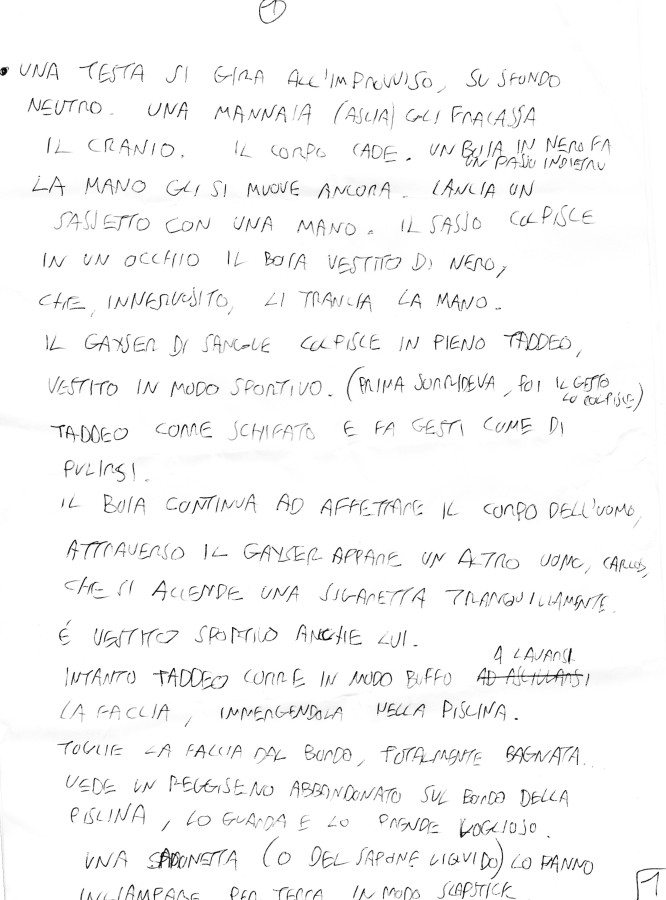 1
• UNA TESTA SI GIRA ALL'IMPROVVISO, SU SFONDO
NEUTRO. UNA MANNAIA (ASCIA) GLI FRACASSA
IL CRANIO. IL CORPO CADE. UN BOIA IN NERO FA
UN PASSO INDIETRO
LA MANO GLI SI MUOVE ANCORA. LANCIA UN
SASSETTO CON UNA MANO. IL SASSO COLPISCE
IN UN OCCHIO IL BOIA VESTITO DI NERO,
CHE, INNERVOSITO, LI TRANCIA LA MANO.
IL GAYSER DI SANGUE COLPISCE IN PIENO TADDEO,
VESTITO IN MODO SPORTIVO. (PRIMA SORRIDEVA, POI IL GETTO
LO COLPISCE)
TADDEO CORRE SCHIFATO E FA GESTI COME DI
PULIRSI.
IL BOIA CONTINUA AD AFFETTARE IL CORPO DELL'UOMO,
ATTRAVERSO IL GAYSER APPARE UN ALTRO UOMO, CARLOS,
CHE SI ACCENDE UNA SIGARETTA TRANQUILLAMENTE.
É VESTITO SPORTIVO ANCHE LUI.
INTANTO TADDEO CORRE IN MODO BUFFO A LAVARSI
LA FACCIA, IMMERGENDOLA NELLA PISCINA.
TOGLIE LA FACCIA DAL BORDO, TOTALMENTE BAGNATA.
VEDE UN REGGISENO ABBANDONATO SUL BORDO DELLA
PISCINA, LO GUARDA E LO PRENDE VOGLIOSO.
UNA SAPONETTA (O DEL SAPONE LIQUIDO) LO FANNO
INCIAMPARE PER TERRA IN MODO SLAPSTICK
1